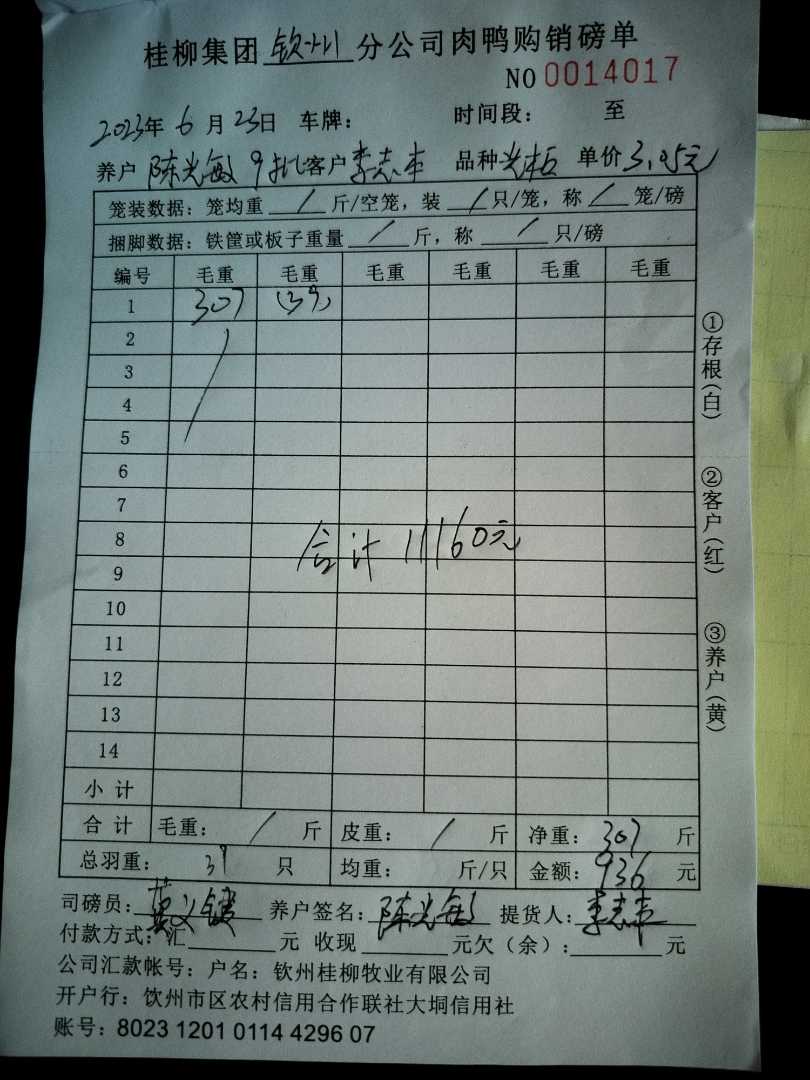 桂柳集团 钦州 分公司肉鸭购销磅单
NO 0014017
2023年 6 月 23日 车牌： 时间段： 至
养户 陈光敏 9批 客户 李志丰 品种 单价 3.05元
笼装数据：笼均重 / 斤/空笼，装 / 只/笼，称 / 笼/磅
捆脚数据：铁筐或板子重量 / 斤，称 / 只/磅
编号 毛重 毛重 毛重 毛重 毛重 毛重
1 307 (39)
2
3
4
5
6
7
8
合计 11160元
9
10
11
12
13
14
小计
合计 毛重： / 斤 皮重： / 斤 净重： 307 斤
总羽重： 39 只 均重： 斤/只 金额： 936 元
司磅员： 养户签名： 陈光敏 提货人： 李志丰
付款方式：汇 元 收现 元欠（余）： 元
公司汇款帐号：户名：钦州桂柳牧业有限公司
开户行：饮州市区农村信用合作联社大垌信用社
账号：8023 1201 0114 4296 07
①存根（白）
②客户（红）
③养户（黄）